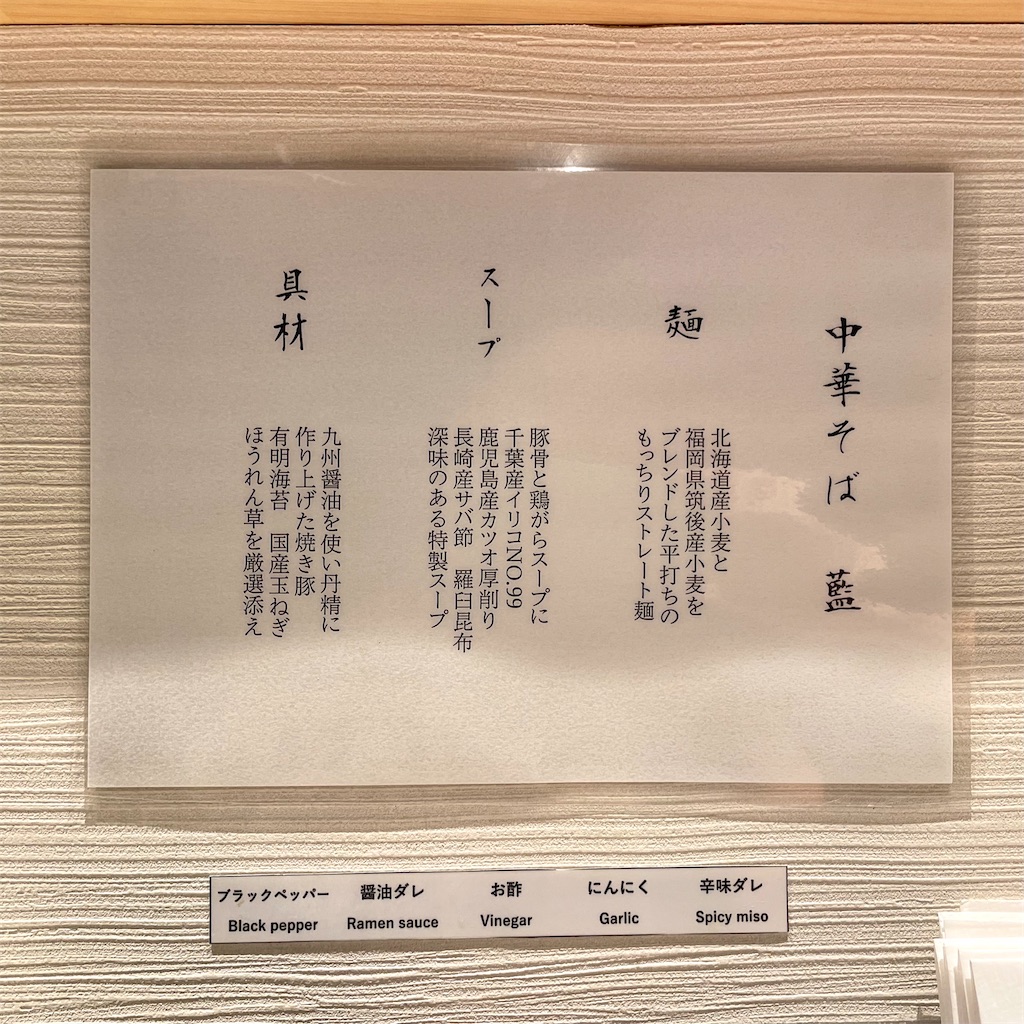 中華そば 藍
麺
北海道産小麦と
福岡県筑後産小麦を
ブレンドした平打ちの
もっちりストレート麺
スープ
豚骨と鶏がらスープに
千葉産イリコNO.99
鹿児島産カツオ厚削り
長崎産サバ節 羅臼昆布
深味のある特製スープ
具材
九州醤油を使い丹精に
作り上げた焼き豚
有明海苔 国産玉ねぎ
ほうれん草を厳選添え
ブラックペッパー 醤油ダレ お酢 にんにく 辛味ダレ
Black pepper Ramen sauce Vinegar Garlic Spicy miso